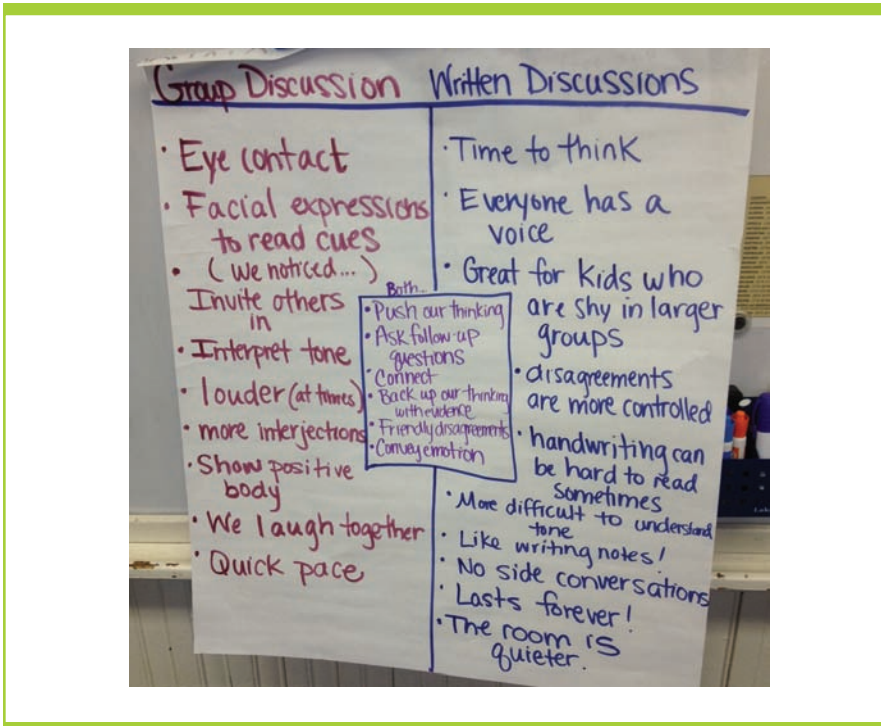 Group Discussion
• Eye contact
• Facial expressions
to read cues
• (We noticed...)
Invite others
in
• Interpret tone
• louder (at times)
• more interjections
• Show positive
body
• We laugh together
• Quick pace
Both...
• Push our thinking
• Ask follow-up
questions
• Connect
• Back up our thinking
with evidence
• Friendly disagreements
• Convey emotion
Written Discussions
• Time to think
• Everyone has a
voice
• Great for kids who
are shy in larger
groups
• disagreements
are more controlled
• handwriting can
be hard to read
sometimes
• More difficult to understand
tone
• Like writing notes!
• No side conversations
• Lasts forever!
• The room is
quieter.